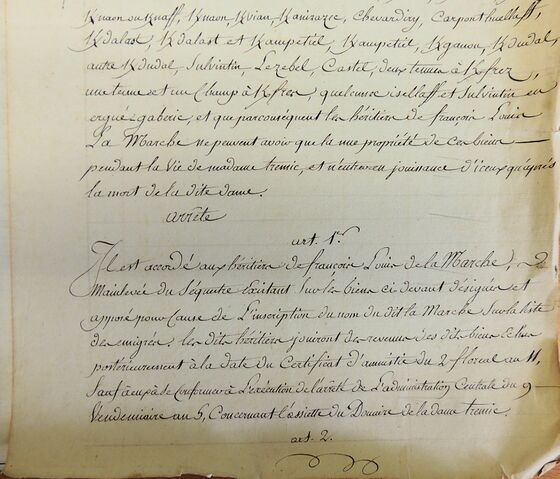 Knaon ou Knaff, Knaon, Kvian, Kanirazec, Chevardiry, Carpont huellaff,
Kdalast, Kdalast et Kampetil, Kampetil, Kganou, Kdudal,
autre Kdudal, Sulvintin, Lezebel, Castel, deux tenues à Kfrez,
une tenue et un Champ à Kfrez, quelennec isellaff et Sulvintin en
ergué-gaberic, et que par conséquent les héritiers de françois Louis
La Marche ne peuvent avoir que la nue propriété de ces biens
pendant la Vie de madame tremic, et n'entrer en jouissance d'iceux qu'après
la mort de la dite dame.
arrête
art. 1.er
Il est accordé aux héritiers de françois Louis de la Marche,
Mainlevée du Séquestre Existant Sur les biens ci devant désignés et
apposé pour Cause de L'inscription du nom du dit la Marche Sur la liste
des emigrés. les dits héritiers jouiront des revenus des dits biens Echus
postérieurement à la date du Certificat d'amnistie du 2 floreal an 11,
Sauf à eux à Se Conformer à L'exécution de l'arrêté de L'administration Centrale du 9
Vendemiaire an 5, Concernant l'assiette du Douaire de la dame tremic.
art. 2.